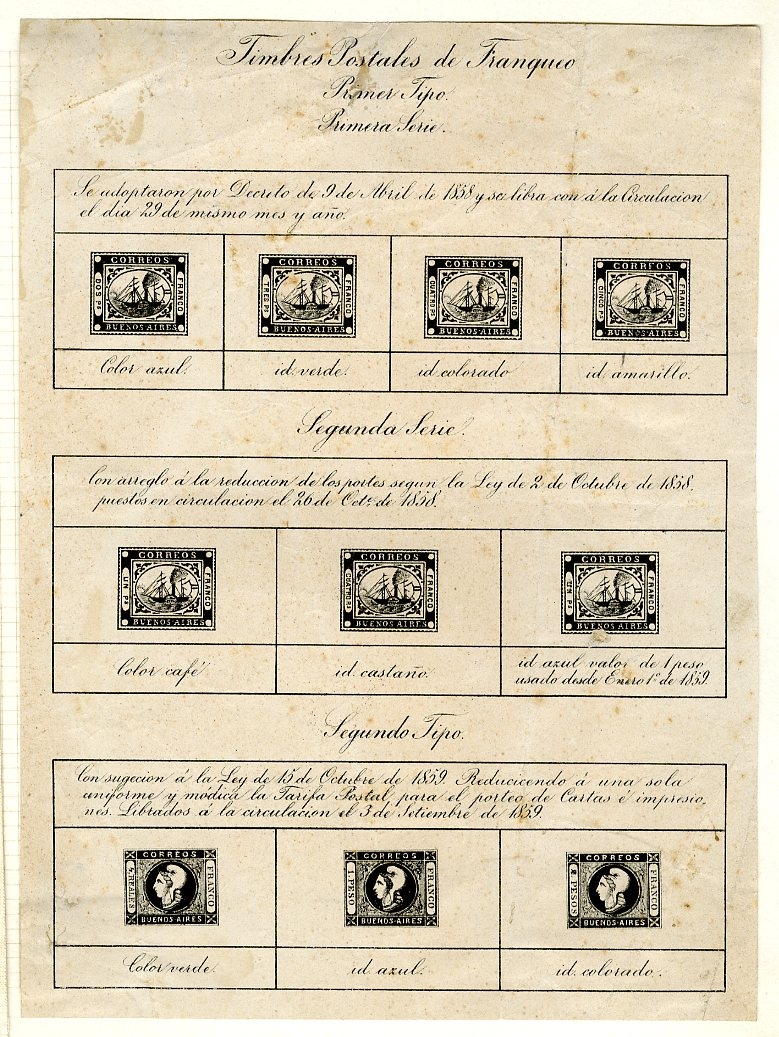 Timbres Postales de Franqueo
Primer Tipo.
Primera Serie.
Se adoptaron por Decreto de 9 de Abril de 1858 y se libra con á la Circulacion
el dia 29 de mismo mes y año.
CORREOS
DOS Ps
FRANCO
BUENOS-AIRES
CORREOS
TRES Ps
FRANCO
BUENOS-AIRES
CORREOS
CUATRO Ps
FRANCO
BUENOS-AIRES
CORREOS
CINCO Ps
FRANCO
BUENOS-AIRES
Color azul.
id verde.
id colorado
id amarillo.
Segunda Serie.
Con arreglo á la reduccion de los portes segun la Ley de 2 de Octubre de 1858.
puestos en circulacion el 26 de Octe de 1858.
CORREOS
UN Ps
FRANCO
BUENOS AIRES
CORREOS
CUATRO Ps
FRANCO
BUENOS AIRES
CORREOS
UN Ps
FRANCO
BUENOS AIRES
Color café
id castaño.
id azul valor de 1 peso
usado desde Enero 1º de 1859.
Segundo Tipo.
Con sugecion á la Ley de 15 de Octubre de 1859. Reducicendo á una sola
uniforme y modica la Tarifa Postal para el porteo de Cartas é impresio-
nes. Librados á la circulacion el 3 de Setiembre de 1859.
CORREOS
4 REALES
FRANCO
BUENOS-AIRES
CORREOS
1 PESO
FRANCO
BUENOS-AIRES
CORREOS
2 PESOS
FRANCO
BUENOS-AIRES
Color verde.
id azul.
id. colorado.